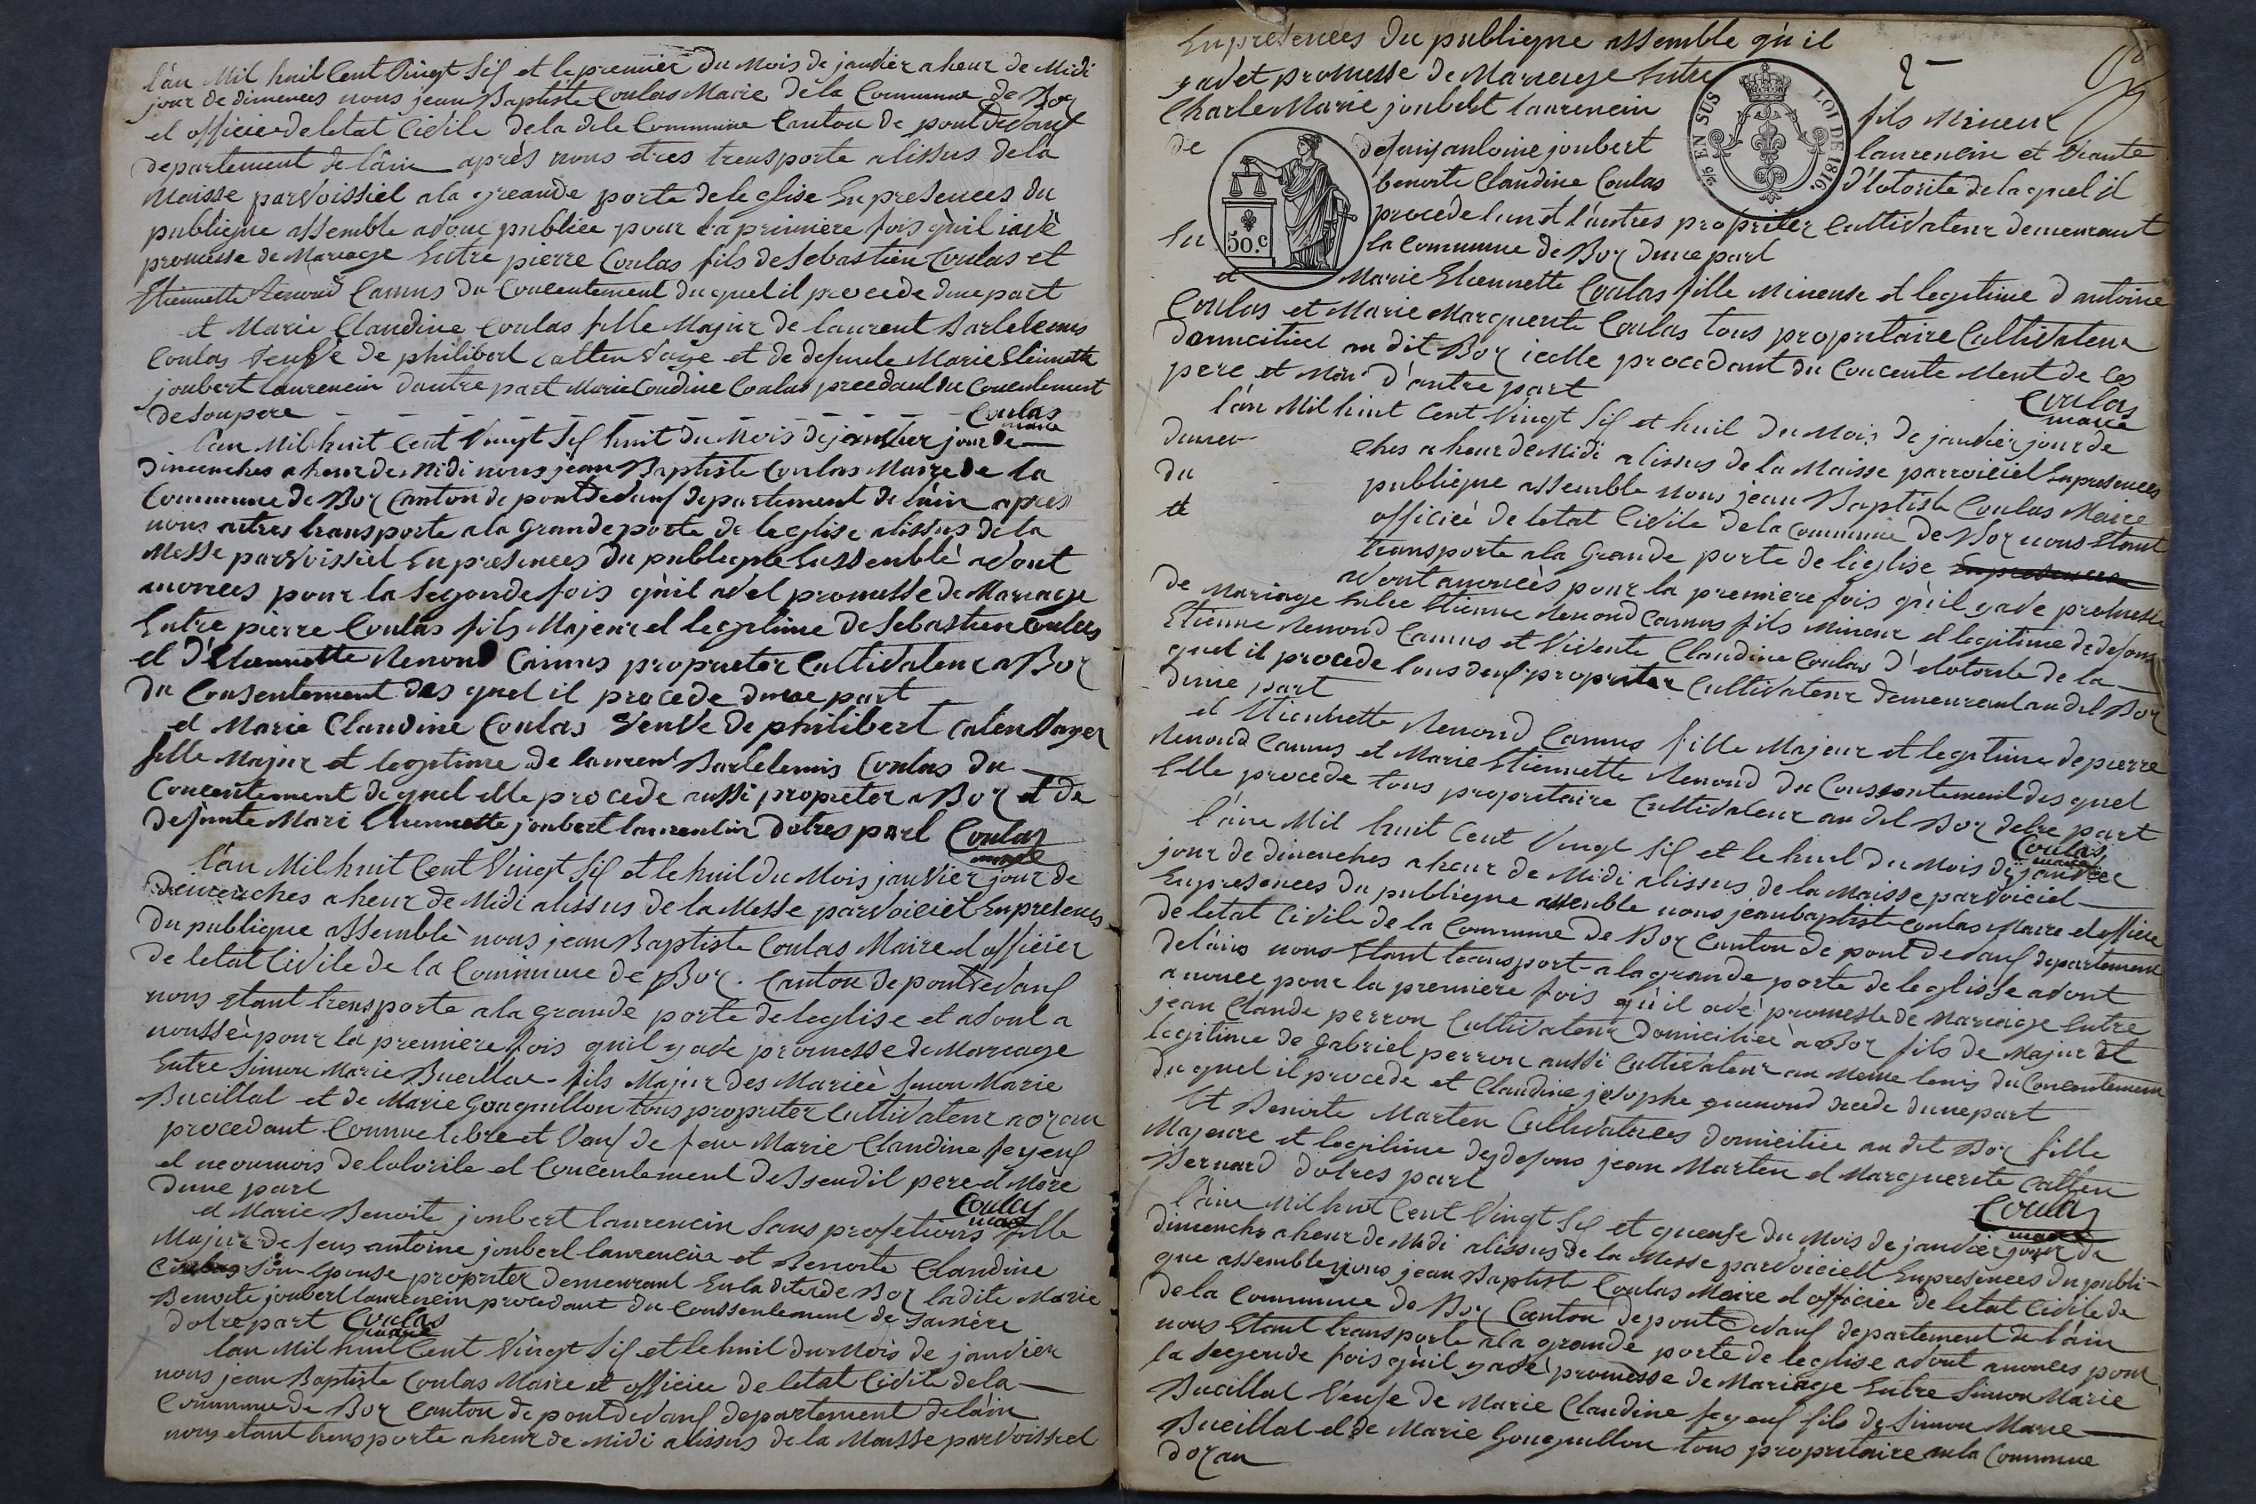 l'an Mil huit Cent Vingt Sis et le premier du Mois de janvier a heur de Midi
jour de dimences nous jean Baptiste Coulas Maire de la Commune de Boz
et officie de letat Civile de la dite Commune Canton de pont devaus
departement de lâin après nous etres trensporte alissus de la
Maisse parvoissiel ala greande porte de leglise En presences du
publique assemble avonc publiee pour la primiere fois qùil iavè
promesse de Mareage Entre pierre Coulas fils de Sebastien Coulas et
Etiennette Renoud Camus du Concentement du quel il procede dune part
et Marie Claudine Coulas fille Majur de laurent Bartelemis
Coulas Veusve de philibert catten Voye et de defunte Marie Etiennette
joubert laurencin dautre part Marie Coudine Coulas precedant du Concentement
de Son pere
Coulas
maire
l'an Mil huit Cent Vingt Sis huit du Mois de janvier jour de
dimenches a heur de Midi nous jean Baptiste Coulas Maire de la
Commune de Boz Canton de pont devaus departement de lain apres
nous aitres transporte ala grande porte de leglise alissus de la
Messe parvoissiel En presences du publique Enssemblè avont
anonces pour la Segonde fois qùil avet promesse de Mariage
Entre pierre Coulas fils Majeur et legitime de Sebastien Coulas
et d'Etiennette Renoud Camus proprieter Cultivateur a Boz
du Consentement des quel il procede dune part
et Marie Claudine Coulas Veuve de philibert caten Voyer
fille Majur et legitime de laurent Bartelemis Coulas du
Concentement de quel elle procede aussi proprieter a Boz et de
defunte Mari Etiennette joubert laurencin dotres part Coulas
maire
l'an Mil huit Cent Vingt Sis et le huit du Mois janvier jour de
dimenches a heur de Midi alissus de la Messe parvoiciel En presences
du publique assemblè nous jean Baptiste Coulas Maire et officier
de letat Civile de la Commune de Boz Canton de pont devaus
nous etant trensporte ala grande porte de leglise et avont a
noussèe pour la premiere fois quil y ave promesse de Mareage
Entre Simon Marie Bucillat fils Majur des Marieè Simon Marie
Bucillat et de Marie Gouguillon tous proprieter Cultivateur a ozan
procedant Comme libre et Veuf de feue Marie Claudine feyeus
et neonmois de lotorite et Concentement desseudit pere et Mere
dune part
Coulas
maire
et Marie Benoite joubert laurencin Sans profetions fille
Majur de feus antoine joubert laurencin et Benoite Claudine
Coulas Son Epouse proprieter demeurant En la dite de Boz la dite Marie
Benoite joubert laurencin procedant du Conssentement de Samere
dotre part Coulas
maire
lan Mil huit Cent Vingt Sis et le huit du Mois de janvier
nous jean Baptiste Coulas Maire et officiee de letat Civile de la
Commune de Boz Canton de pont devaus departement de lâin
nous etant trensporte a heur de Midi alissus de la Maisse parvoissiel
En presences du publique assemble qùil
y avet promesse de Mareage Entre
Charle Marie joubert laurencin fils Mineur
de defuns antoine joubert laurencin et Vivante
benoite Claudine Coulas d'lotorite de la quel il
procede lun et l'autres proprieter Cultivateur demeurant
En la Commune de Boz dune part
2
25 EN SUS
LOI DE 1816.
50.c
et Marie Etiennette Coulas fille Mineuse et legitime d antoine
Coulas et Marie Marguerite Coulas tous propritaire Cultivateur
domicitiee au dit Boz icelle procedant du Concente Ment de Ces
pere et Mere d'autre part
Coulas
maire
l'an Mil huit Cent Vingt Sis et huit du Mois de janvier jour de
dimenches a heur de Midi alissus de la Maisse parvoiciel En presences
du publique assemble nous jean Baptiste Coulas Maire
et officiee de letat Civile de la Commune de Boz nous Etant
transporte ala Grande porte de leglise En presences
avont anoncès pour la premiere fois qùil y ave promesse
de Mariage Entre Etienne Renoud Camus fils Mineur et legitime de defons
Etienne Renoud Camus et Vivente Claudine Coulas d'elotorite de la
quel il procede tous deus proprieter Cultivateur demeurant au dit Boz
dune part
et Etiennette Renoud Camus fille Majeur et legitime de pierre
Renoud Camus et Marie Etiennette Renoud du Conssentement des quel
Elle procede tous propritaire Cultivateur au dit Boz dotre part
Coulas
maire
l'aine Mil huit Cent Vingt Sis et le huit du Mois de janvier
jour de dimenches a heur de Midi alissus de la Maisse parvoiciel
En presences du publique assemble nous jean baptiste Coulas Maire et officie
de letat Civile de la Commune de Boz Canton de pont devaus departement
de lâin nous Etant transport ala grande porte de leglisse avont
anonce pour la premiere fois qùil avè promesse de Mareaige Entre
jean Claude perron Cultivateur domicitieè à Boz fils de Majur et
legitime de Gabriel perron aussi Cultivateur au Meme lieus du Concentement
du quel il procede et Claudine jesophe guenoud decede dune part
Et Benoite Marten Cultivatrices domicitiee au dit Boz fille
Majeure et legitime des defons jean Marten et Marguerite catten
Bernard dotres part
Coulas
maire
l'ain Mil huit Cent Vingt Sis et quense du Mois de janvier jour de
dimenche a heur de Midi alissus de la Messe parvoiciell En presences du publi-
que assemble nous jean Baptist Coulas Maire et officiee de letat Civile de
de la Commune de Boz Canton de pont devaus departement de lain
nous Etant transporte ala grande porte de leglise avont anonces pour
la Segonde fois qùil y avè promesse de Mariage Entre Simon Marie
Bucillat Veufe de Marie Claudine feyeus fils de Simon Marie
Bucillat et de Marie Gouguillon tous propritaire en la Commune
dozan